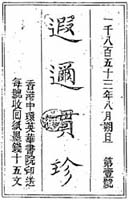 一千八百五十三年八月朔旦
第壹號
遐邇貫珍
香港中環英華書院印送
每號收回紙墨錢十五文